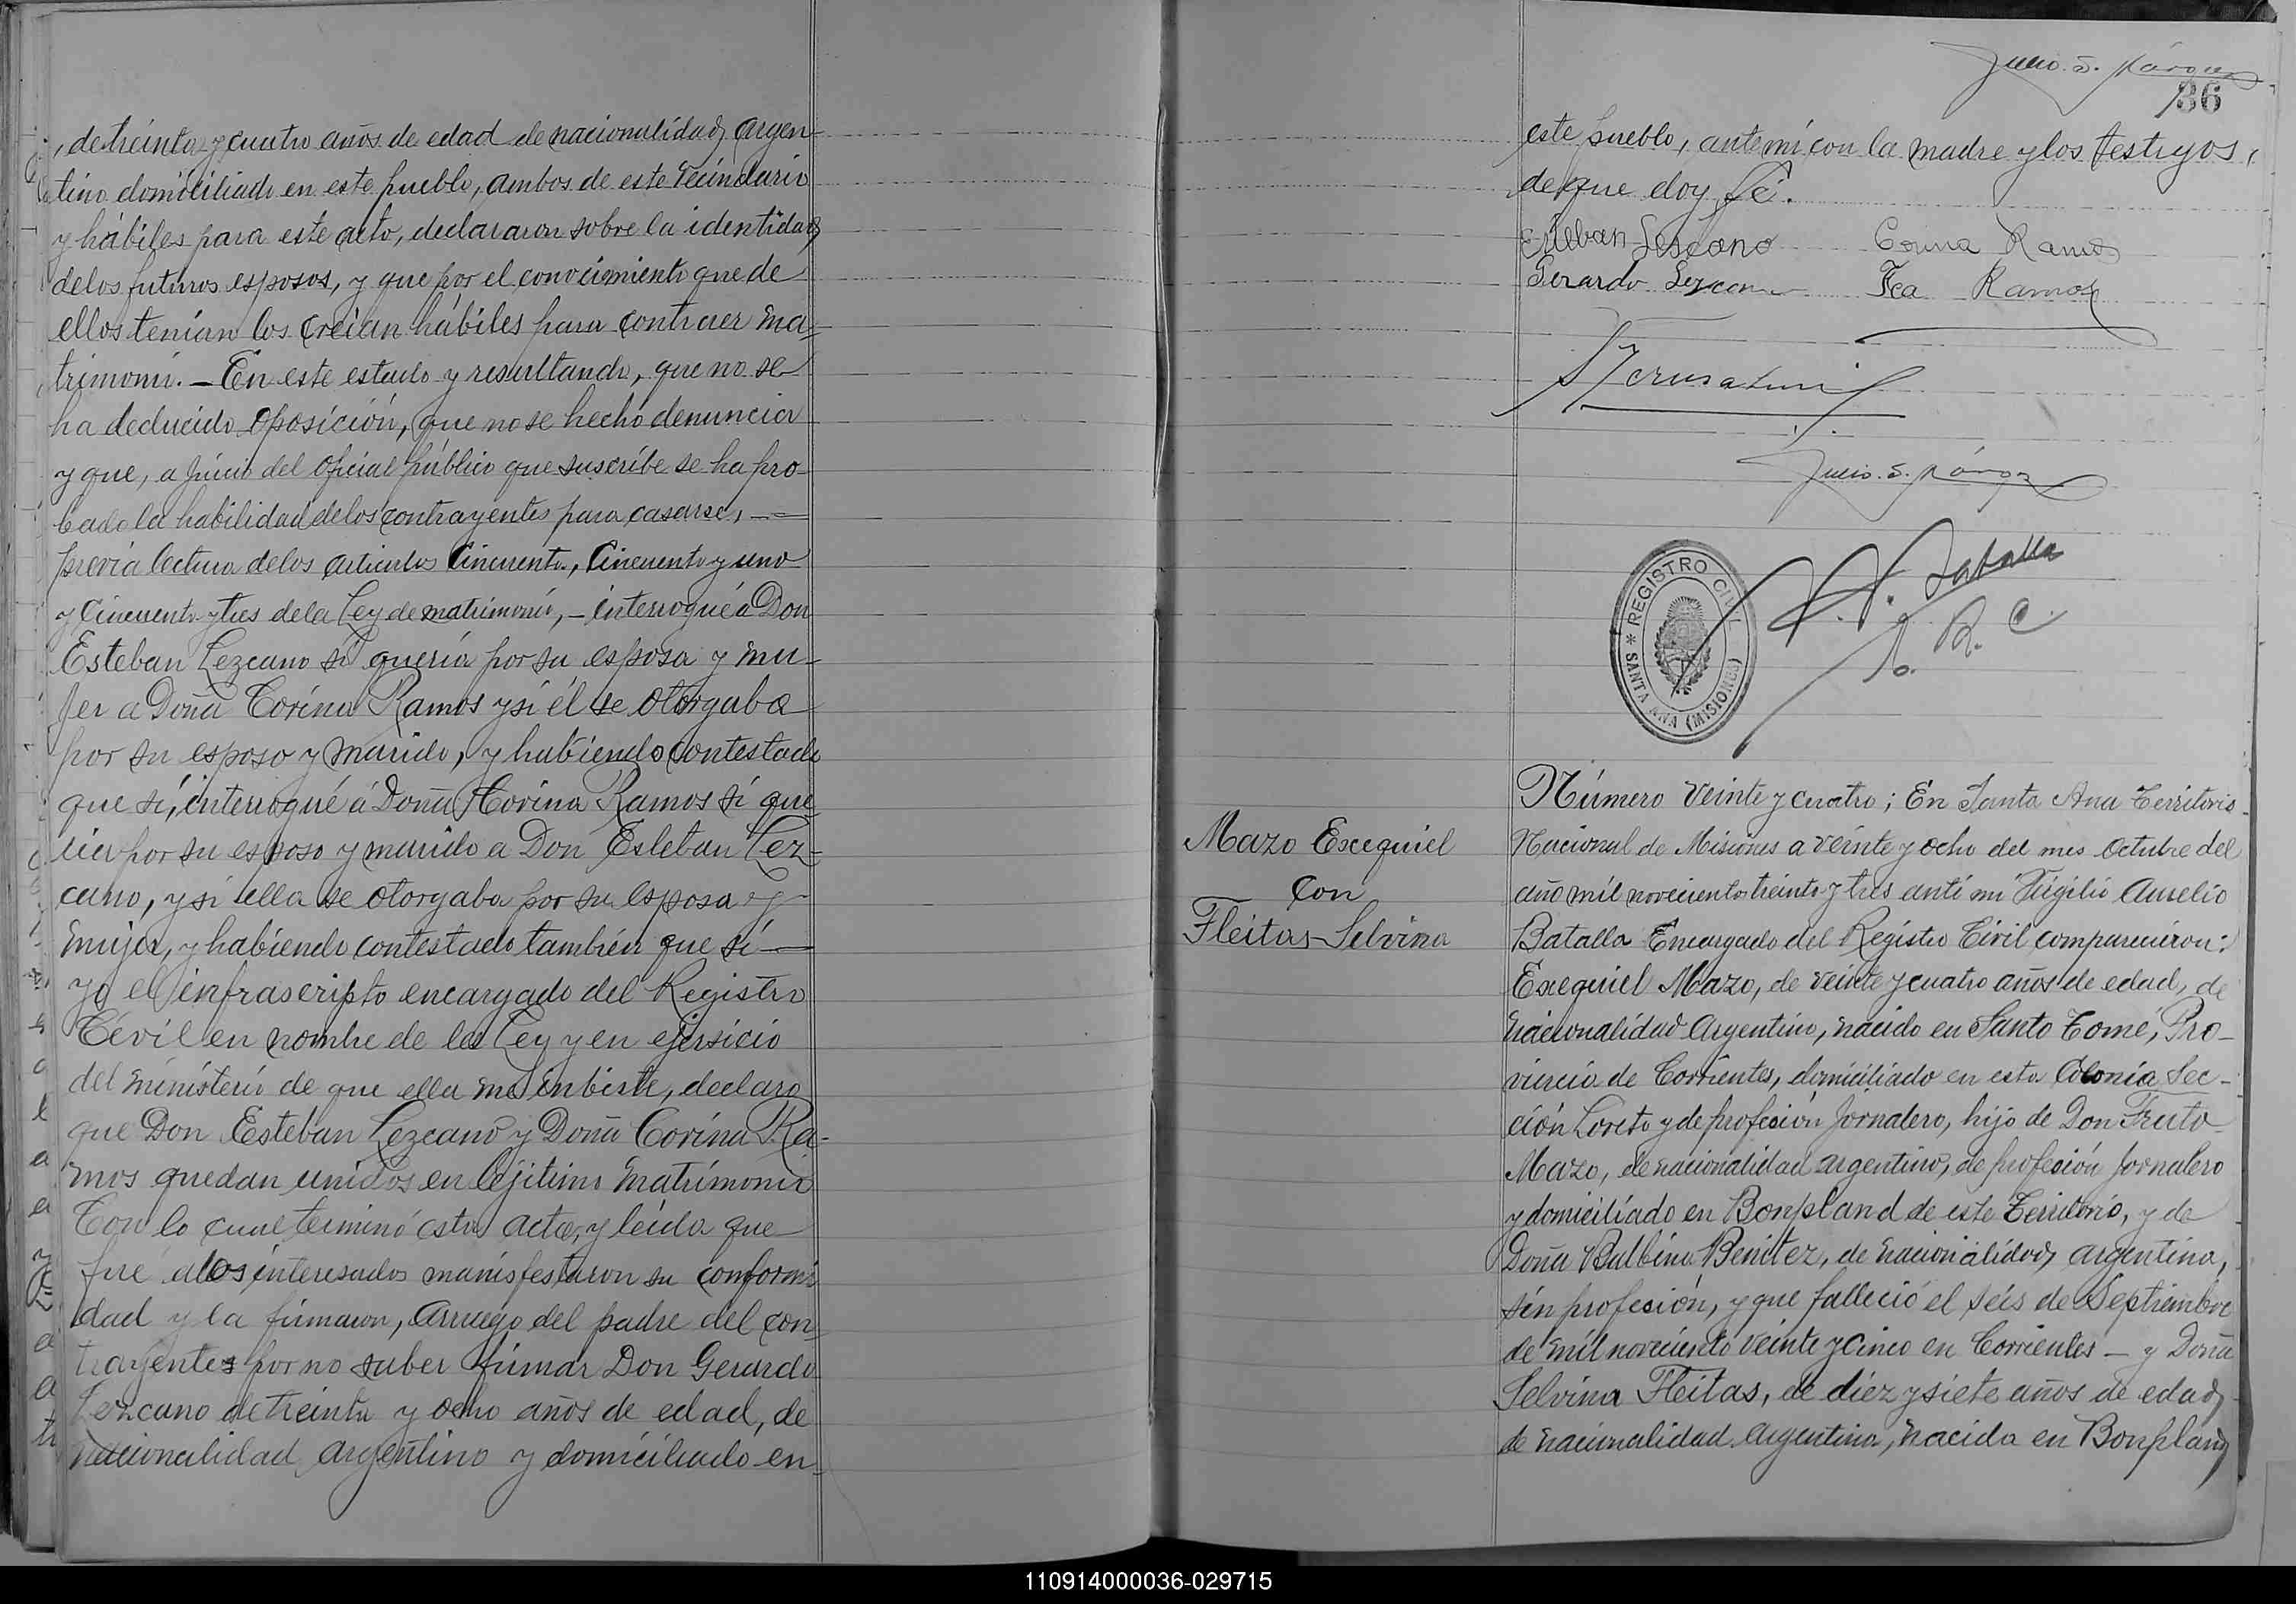 , de treinta y cuatro años de edad de nacionalidad argen-
tino domiciliado en este pueblo, ambos de este vecindario
y hábiles para este acto, declararon sobre la identidad
de los futuros esposos, y que por el conocimiento que de
ellos tenían los creían hábiles para contraer ma-
trimonio. - En este estado y resultando, que no se
ha deducido oposición, que no se hecho denuncia
y que, a juicio del oficial público que suscribe se ha pro
bado la habilidad de los contrayentes para casarse, -
previa lectura de los articulos cincuenta, cincuenta y uno
y cincuenta y tres de la Ley de matrimonio, - interrogué á Don
Esteban Lezcano sí quería por su esposa y mu-
jer a Doña Corina Ramos y sí él se otorgaba
por su esposo y marido, y habiendo contestado
que sí, interrogué á Doña Corina Ramos sí que
ria por su esposo y marido a Don Esteban Lez-
cano, y sí ella se otorgaba por su esposa y
mujer, y habiendo contestado también que sí -
yo el infrascripto encargado del Registro
Cévil en nombre de la Ley y en ejersicio
del ministerio de que ella me inbiste, declaro
que Don Esteban Lezcano y Doña Corina Ra-
mos quedan unidos en lejitimo matrimonio
Con lo cual terminó esta acta, y leída que
fué a los interesados manisfestaron su conformi
dad y la firmaron, arruego del padre del con-
trayentes por no saber firmar Don Gerardo
Lezcano de treinta y ocho años de edad, de
nacionalidad argentino y domiciliado en
Julio. S. Márquez
36
este pueblo, ante mí con la madre y los testigos,
de que doy fé.
Esteban Lescano Corina Ramos
Gerardo Lezcano Fca Ramos
Julio. S. Márquez
REGISTRO CIVIL
* SANTA ANA (MISIONES)
V. A. Batalla
E. R. C.
Mazo Exequiel
con
Fleitas Selvina
Número Veinte y cuatro; En Santa Ana Territorio
Nacional de Misiones a veinte y ocho del mes Octubre del
año mil novecientos treinta y tres anti mi Virgilio Aurelio
Batalla Encargado del Registro Civil comparecieron:
Exequiel Mazo, de veinte y cuatro años de edad, de
nacionalidad Argentino, nacido en Santo Tomé, Pro-
vincia de Corrientes, domiciliado en esta Colonia Sec-
ción Loreto y de profesión Jornalero, hijo de Don Fruto
Mazo, de nacionalidad argentino, de profesión jornalero
y domiciliado en Bonpland de este Territorio, y de
Doña Balbina Benitez, de nacionalidad argentina,
sin profesión, y que falleció el séis de Septiembre
de mil noveciento veinte y cinco en Corrientes - y Doña
Selvina Fleitas, de diez y siete años de edad
de nacionalidad Argentina, nacida en Bonpland
110914000036-029715